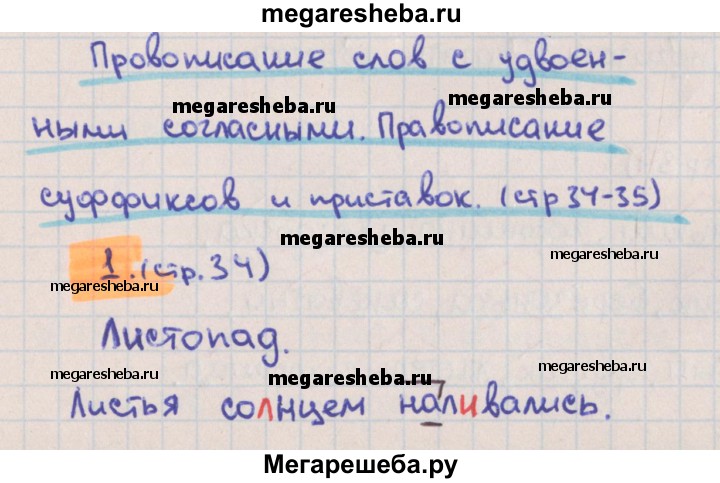 megaresheba.ru
Провописание слов с удвоен-
megaresheba.ru megaresheba.ru
ными согласными. Правописание
суффиксов и приставок. (стр 34-35)
megaresheba.ru
1. (стр. 34)
megaresheba.ru megaresheba.ru
Листопад.
megaresheba.ru megaresheba.ru
Листья солнцем наливались.
Мегарешеба.ру